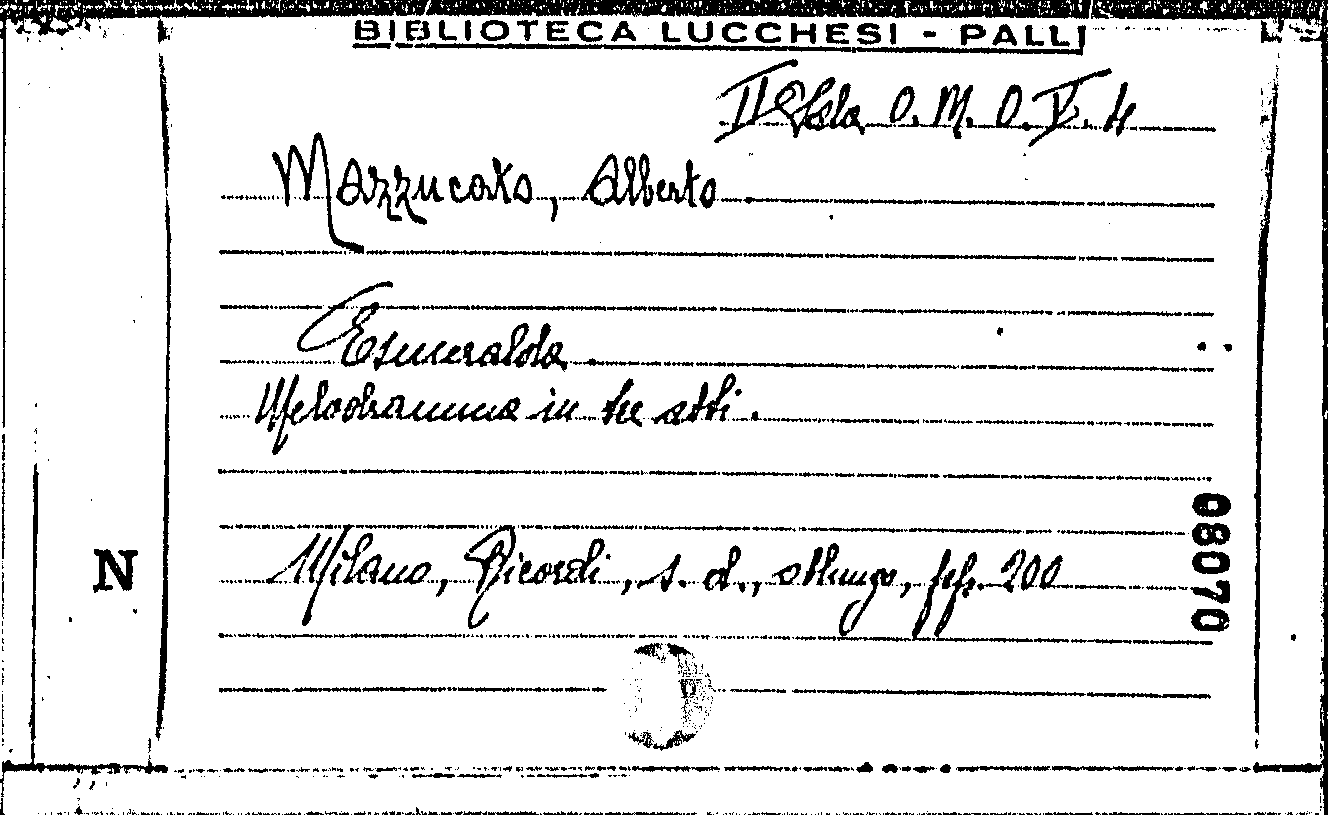 BIBLIOTECA LUCCHESI - PALLI
II Sala O. M. O. V. 4
Mazzucato, Alberto.
Esmeralda.
Melodramma in tre atti.
N
Milano, Ricordi, s. d., oblungo, pp. 200
08070